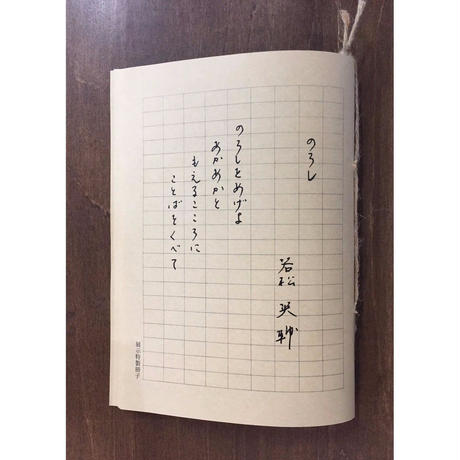 のろし
若松 英輔
のろしをあげよ
あかあかと
もえるこころに
ことばをくべて
展示特製冊子